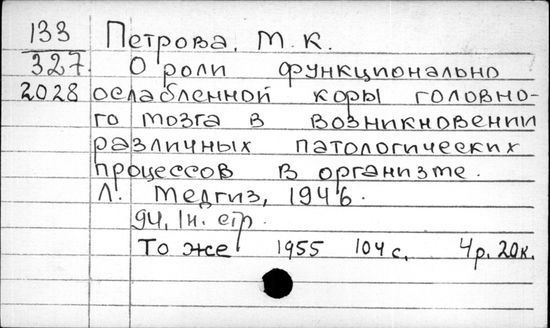 133 Петрова, М. К.
327. О роли функционально
2028 ослабленной коры головно-
го мозга в возникновении
различных патологических
процессов в организме.
Л. Медгиз, 1946.
94, 1н. стр.
То же 1955 104 с. 4р. 20к.